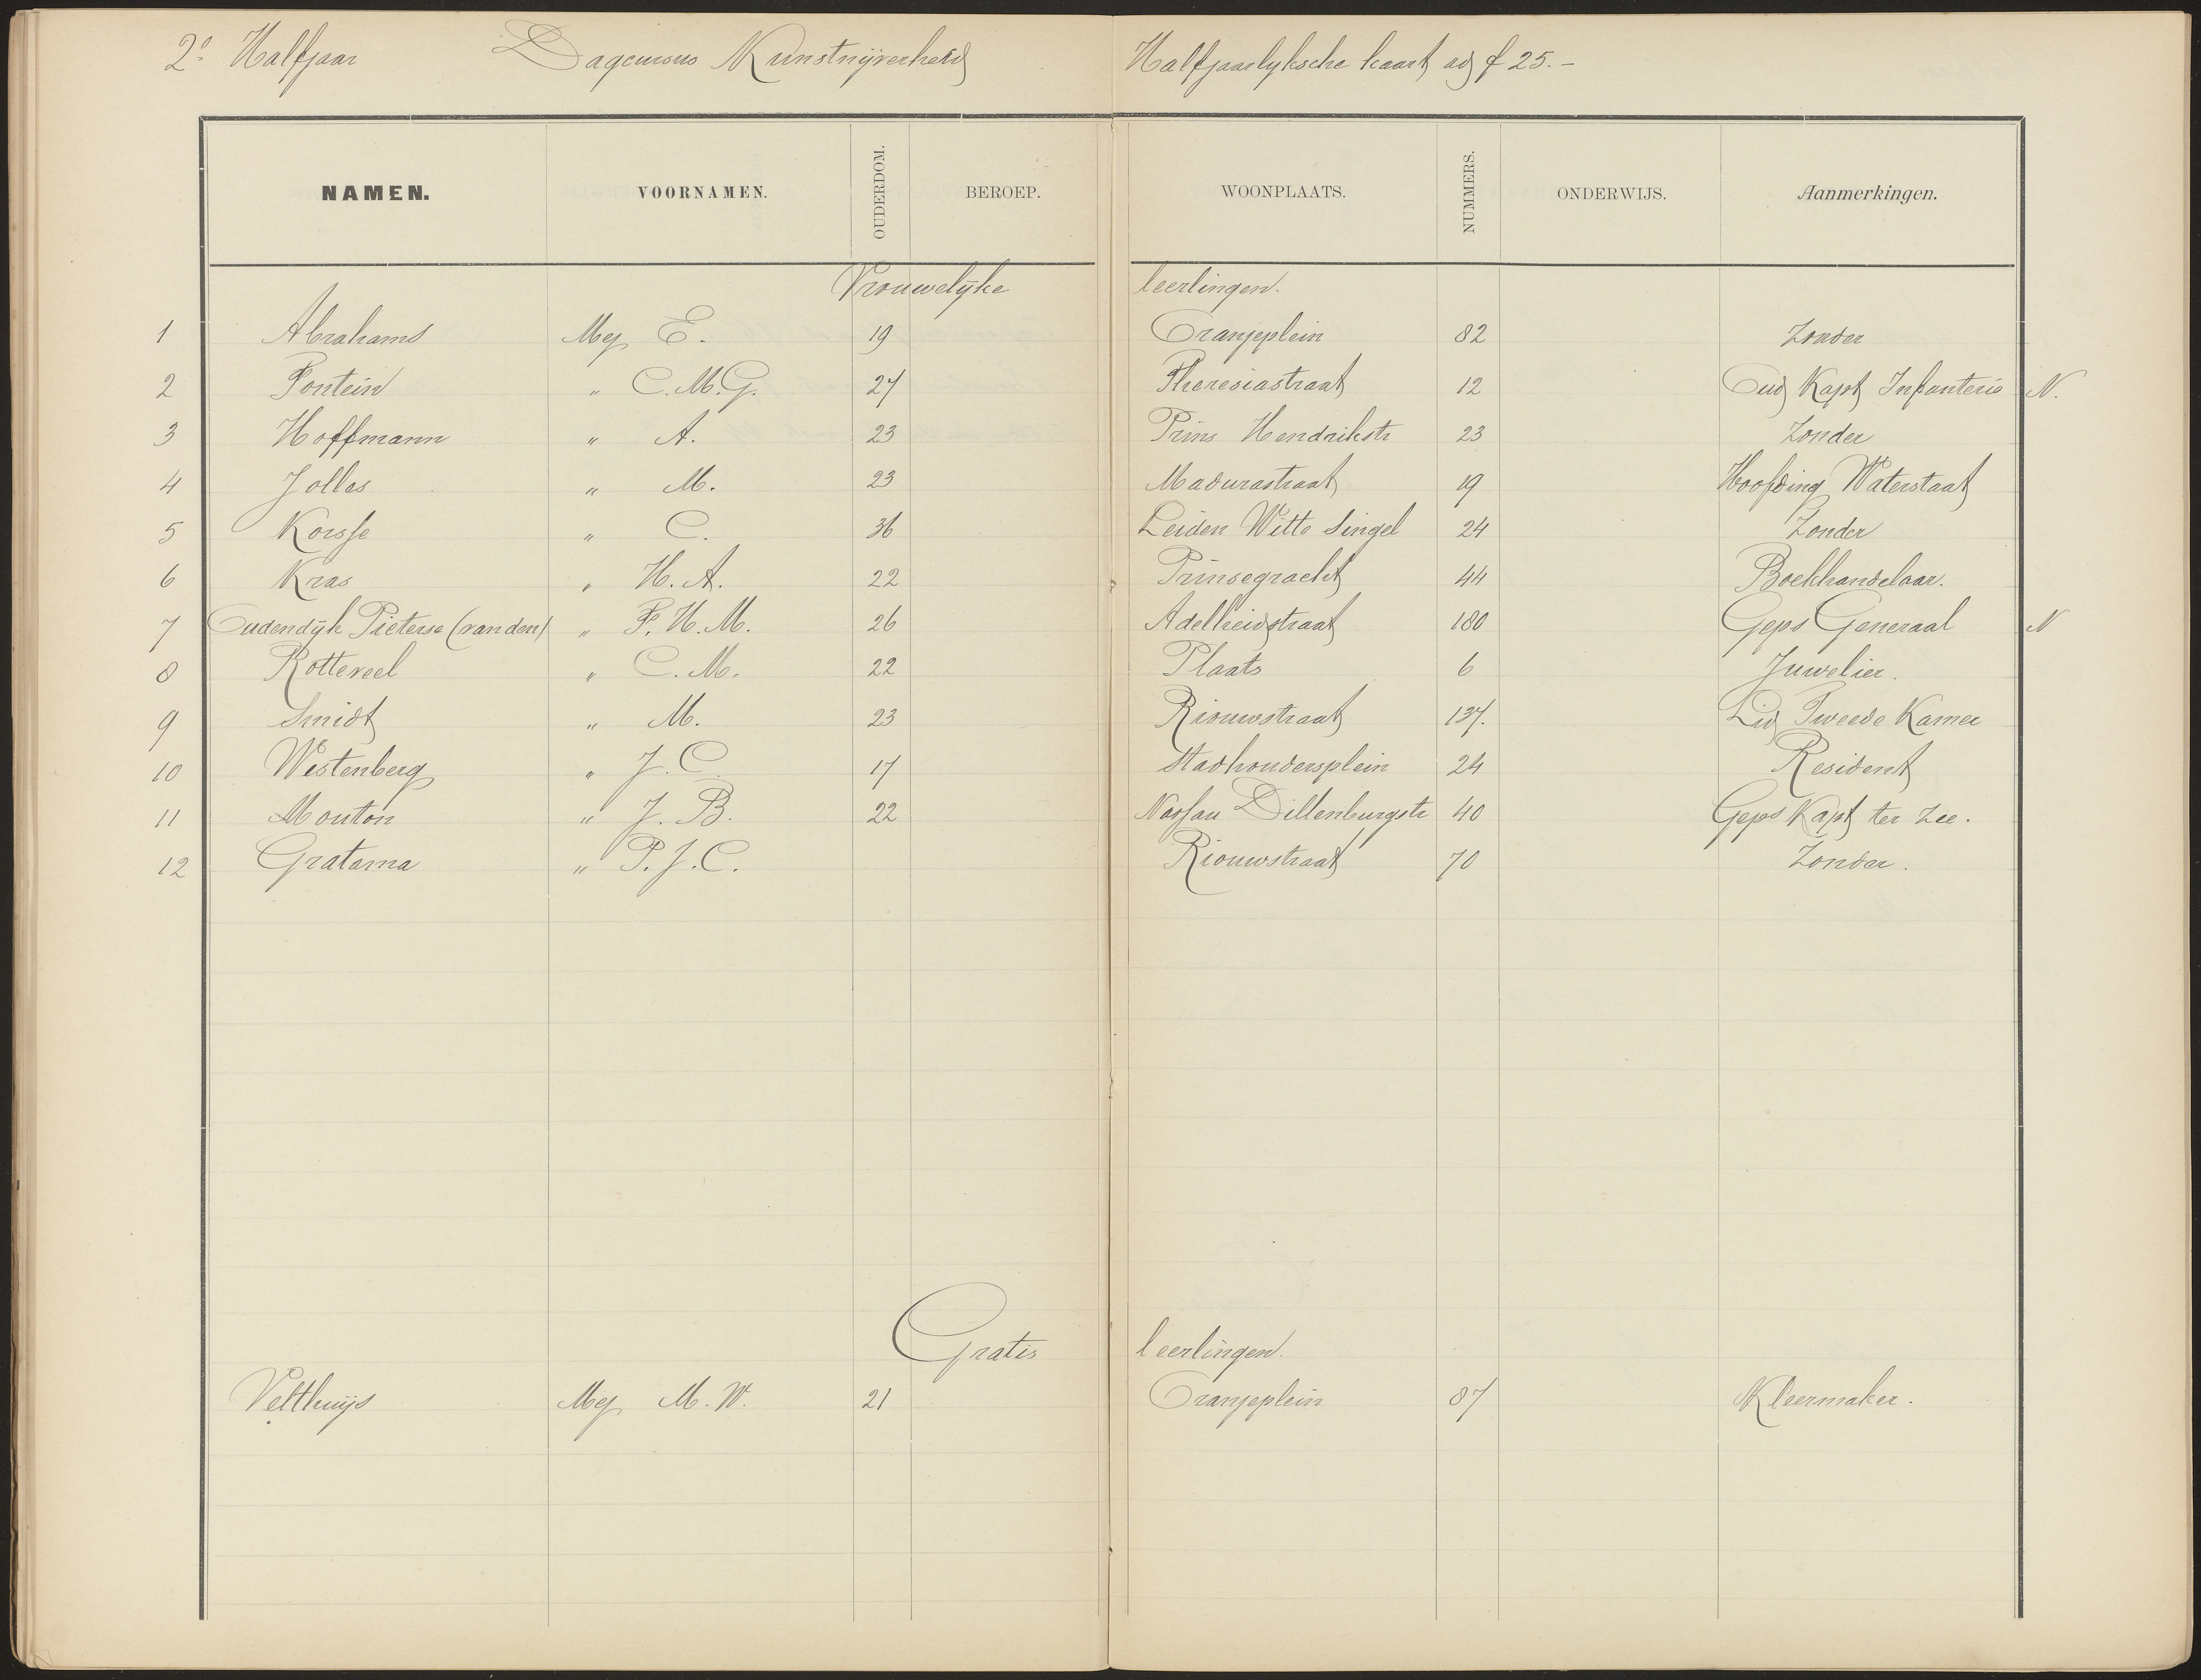 2e Halfjaar Dagcursus Kunstnijverheid Halfjaarlyksche kaart ad f 25.-
NAMEN. VOORNAMEN. OUDERDOM. BEROEP. WOONPLAATS. NUMMERS. ONDERWIJS. Aanmerkingen.
Vrouwelijke leerlingen.
1 Abrahams Mej E. 19 Oranjeplein 82 Zonder
2 Fontein " C.M.G. 27 Theresiastraat 12 Oud Kapt Infanterie N.
3 Hoffmann " A. 23 Prins Hendrikstr 23 Zonder
4 Jolles " M. 23 Madurastraat 19 Hoofding Waterstaat
5 Korsse " C. 36 Leiden Witte Singel 24 Zonder
6 Kras " H.A. 22 Prinsegracht 44 Boekhandelaar.
7 Oudendijk Pieterse (van den) " F.H.M. 26 Adelheidstraat 180 Geps Generaal N
8 Rotteveel " C.M. 22 Plaats 6 Juwelier.
9 Smidt " M. 23 Riouwstraat 137. Lid Tweede Kamer
10 Westenberg " J.C. 17 Stadhoudersplein 24 Resident
11 Mouton " J.B. 22 Nassau Dillenburgstr 40 Geps Kapt ter Zee.
12 Gratama " P.J.C. Riouwstraat 70 Zonder.
Gratis leerlingen.
Velthuijs Mej M.W. 21 Oranjeplein 87 Kleermaker.